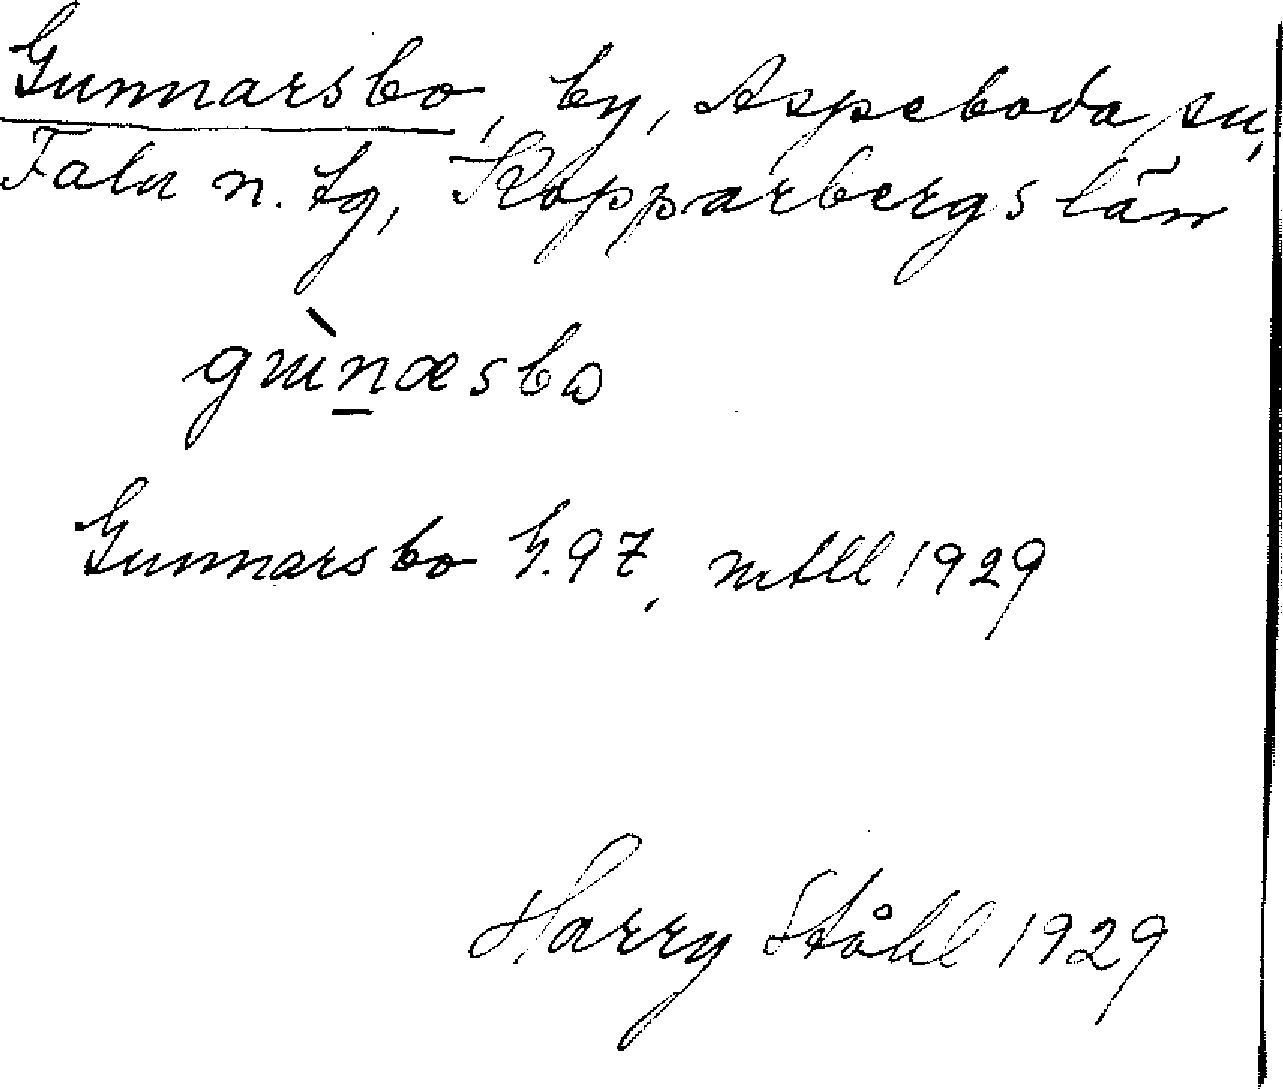 Gunnarsbo, by, Aspeboda sn,
Falu n. tg, Kopparbergs län
Gunnarsbo G.97, mtll 1929
Harry Ståhl 1929